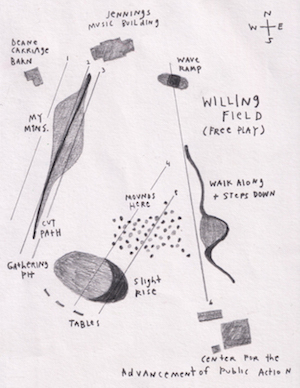 JENNINGS
MUSIC BUILDING
N
W E
S
DEANE
CARRIAGE
BARN
1
2
3
WAVE
RAMP
WILLING
FIELD
(FREE PLAY)
MY
MTNS.
4
MOUNDS
HERE
5
WALK ALONG
+ STEPS DOWN
CUT
PATH
GATHERING
PIT
SLIGHT
RISE
TABLES
6
CENTER FOR THE
ADVANCEMENT OF PUBLIC ACTION